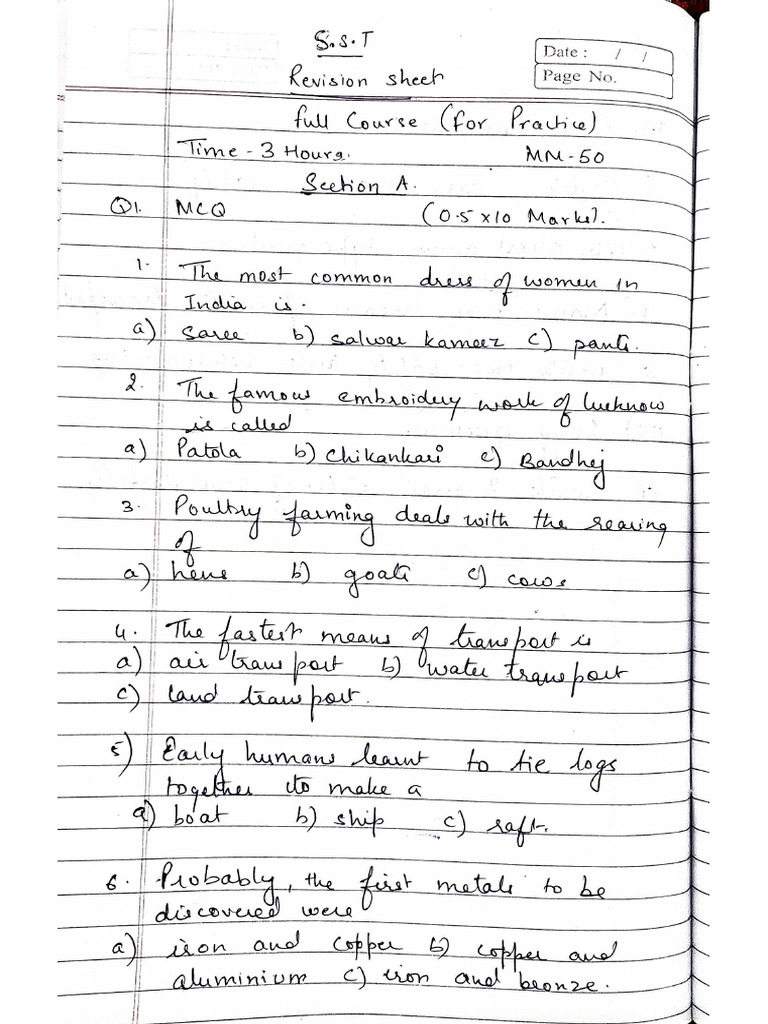 S.S.T
Date : / /
Revision sheet
Page No.
full Course (for Practice)
Time - 3 Hours. MM-50
Section A.
Q1. MCQ (0.5 x 10 Marks).
1. The most common dress of women in
India is.
a) saree b) salwar kameez c) pants.
2. The famous embroidery work of lucknow
is called
a) Patola b) Chikankari c) Bandhej
3. Poultry farming deals with the rearing
of
a) hens b) goats c) cows
4. The fastest means of transport is
a) air transport b) water transport
c) land transport.
5) Early humans learnt to tie logs
together to make a
a) boat b) ship c) raft.
6. Probably, the first metals to be
discovered were
a) iron and copper b) copper and
aluminium c) iron and bronze.